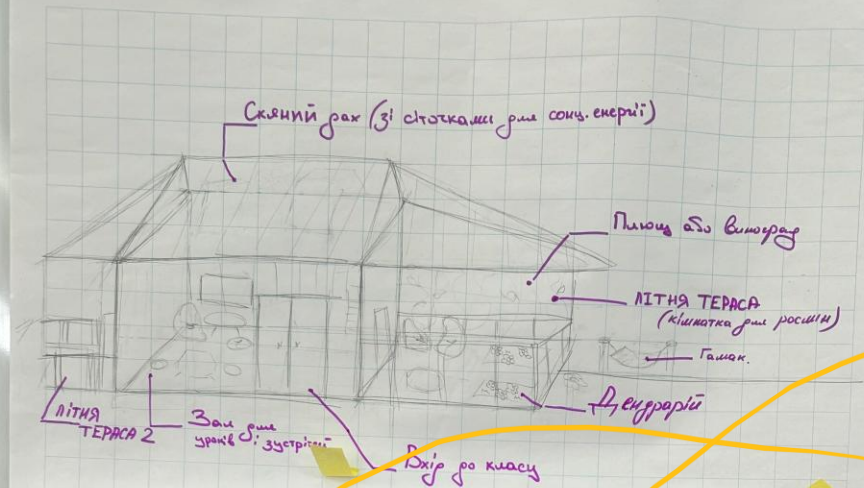 Скяний дах (зі сіточками для сонц. енергії)
Плющ або виноград
ЛІТНЯ ТЕРАСА
(кімнатка для рослин)
Гамак.
Дендрарій
ЛІТНЯ
ТЕРАСА 2
Зал для
уроків і зустрічей
Вхід до класу